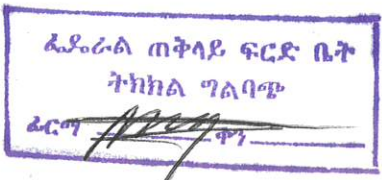 ፌዴራል ጠቅላይ ፍርድ ቤት
ትክክል ግልባጭ
ፊርማ ቀን